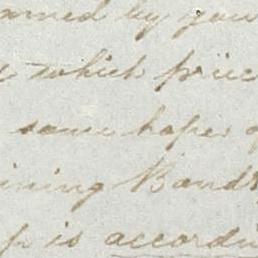 by you
which price
some hopes of
ining Bonds
is accordi